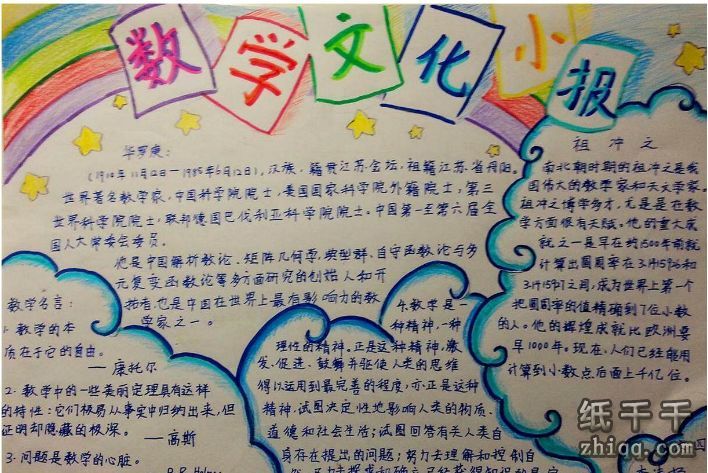 数学文化小报
华罗庚:
(1910年11月12日—1985年6月12日),汉族,籍贯江苏金坛,祖籍江苏省丹阳。
世界著名数学家,中国科学院院士,美国国家科学院外籍院士,第三
世界科学院院士,联邦德国巴伐利亚科学院院士。中国第一至第六届全
国人大常委会委员。
他是中国解析数论、矩阵几何学、典型群、自守函数论与多
元复变函数论等多方面研究的创始人和开
拓者,也是中国在世界上最有影响力的数
学家之一。
祖冲之
南北朝时期的祖冲之是我
国伟大的数学家和天文学家。
祖冲之博学多才,尤其是在数
学方面很有天赋。他的重大成
就之一是早在约1500年前就
计算出圆周率在3.1415926和
3.1415927之间,成为世界上第一个
把圆周率的值精确到7位小数
的人。他的辉煌成就比欧洲要
早1000年。现在,人们已经能用
计算到小数点后面上千亿位。
数学名言:
1.数学的本
质在于它的自由。
—康托尔
2.数学中的一些美丽定理具有这样
的特性:它们极易从事实中归纳出来,但
证明却隐藏的极深。
—高斯
3.问题是数学的心脏。
4.数学是一
种精神,一种
理性的精神。正是这种精神,激
发、促进、鼓舞并驱使人类的思维
得以运用到最完善的程度,亦正是这种
精神,试图决定性地影响人类的物质、
道德和社会生活;试图回答有关人类自
身存在提出的问题;努力去理解和控制自
纸千千
zhiqq.com